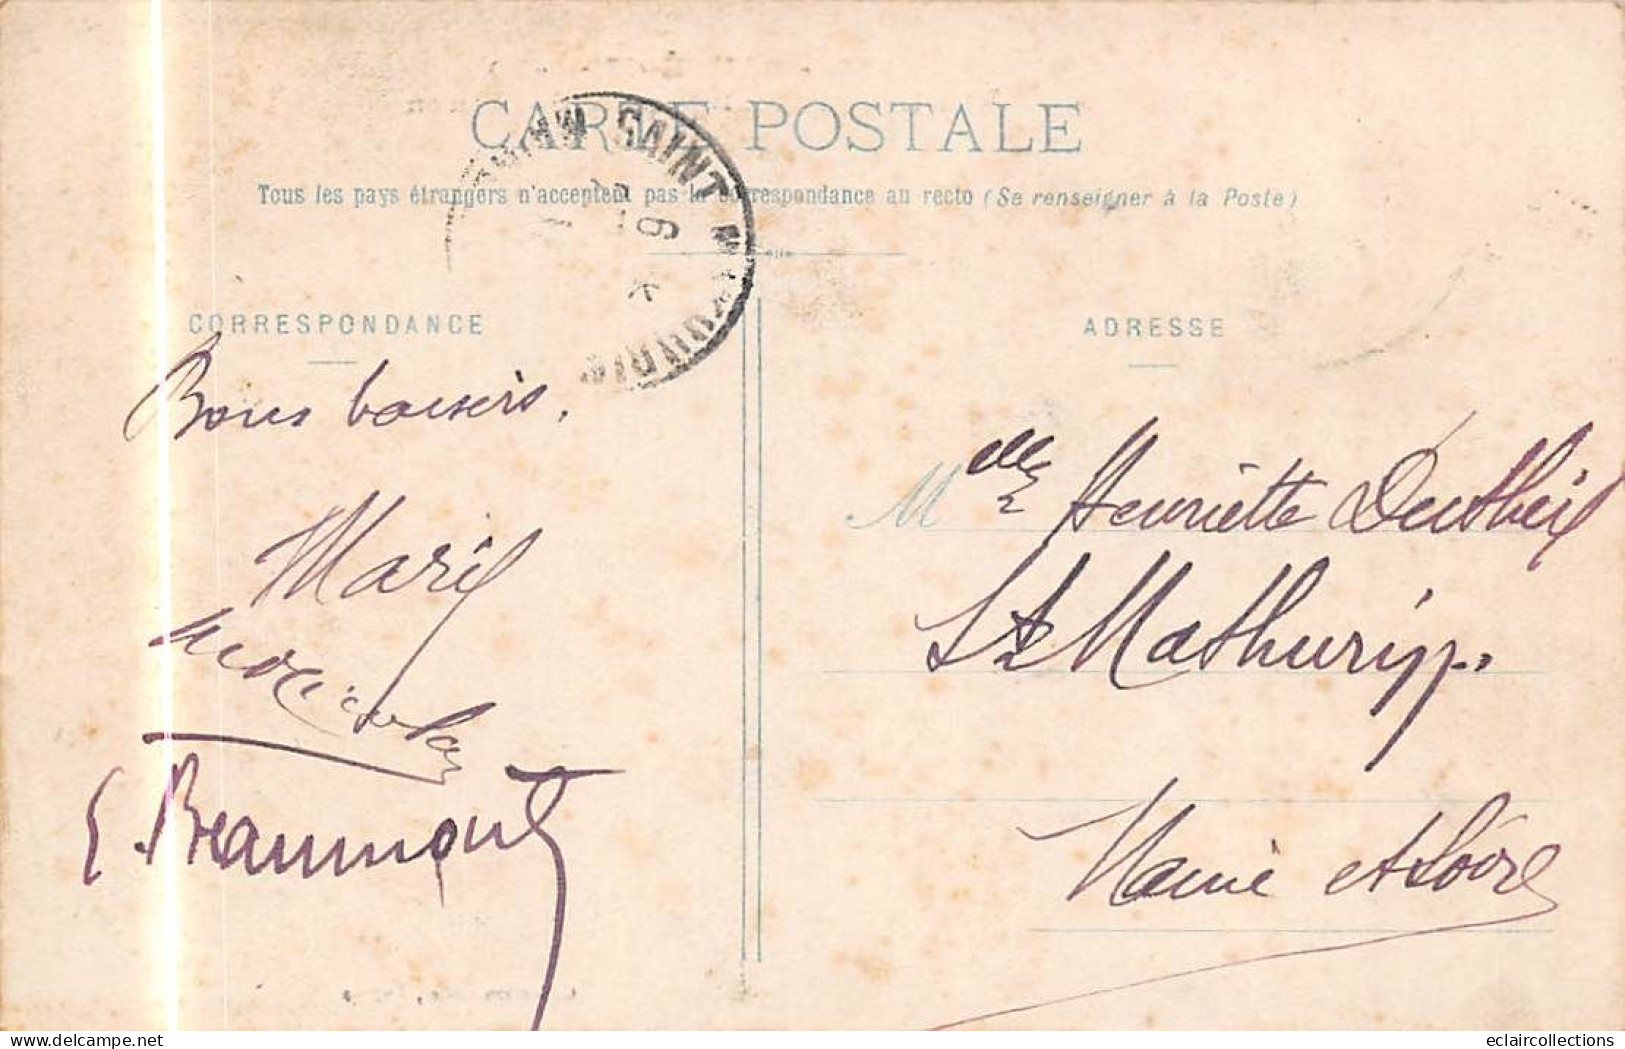 CARTE POSTALE
Tous les pays étrangers n'acceptent pas la correspondance au recto (Se renseigner à la Poste)
SAINT MATHURIN
CORRESPONDANCE
ADRESSE
Bons baisers.
Marie
E. Beaumont
Mlle Henriette Dutheil
St Mathurin
Maine et Loire
delcampe.net
eclaircollections